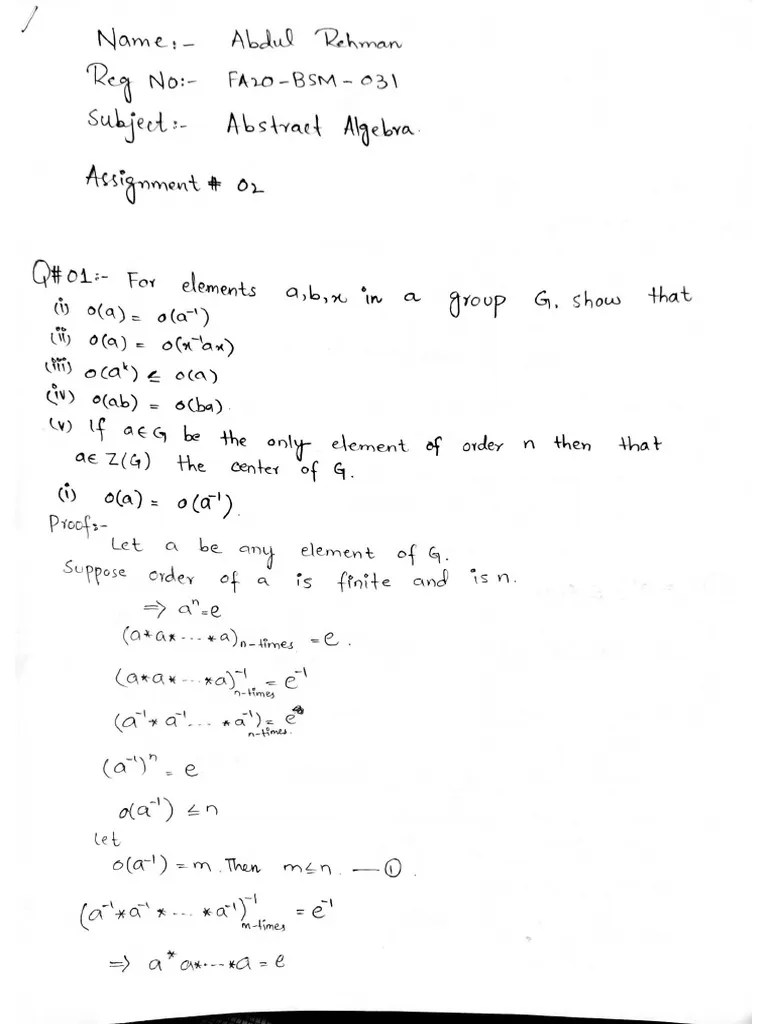 Name:- Abdul Rehman
Reg No:- FA20-BSM-031
Subject:- Abstract Algebra.
Assignment # 02
Q#01:- For elements a,b,x in a group G. show that
(i) o(a) = o(a⁻¹)
(ii) o(a) = o(x⁻¹ax)
(iii) o(aᵏ) ≤ o(a)
(iv) o(ab) = o(ba).
(v) If a∈G be the only element of order n then that
a∈ Z(G) the center of G.
(i) o(a) = o(a⁻¹).
Proof:-
Let a be any element of G.
Suppose order of a is finite and is n.
⇒ aⁿ=e
(a*a*----*a)n-times = e.
(a*a*----*a)⁻¹n-times = e⁻¹
(a⁻¹*a⁻¹....*a⁻¹)n-times. = e
(a⁻¹)ⁿ = e
o(a⁻¹) ≤ n
let
o(a⁻¹) = m. Then m≤n. —①.
(a⁻¹*a⁻¹*....*a⁻¹)⁻¹m-times = e⁻¹
⇒ a*a*....*a = e